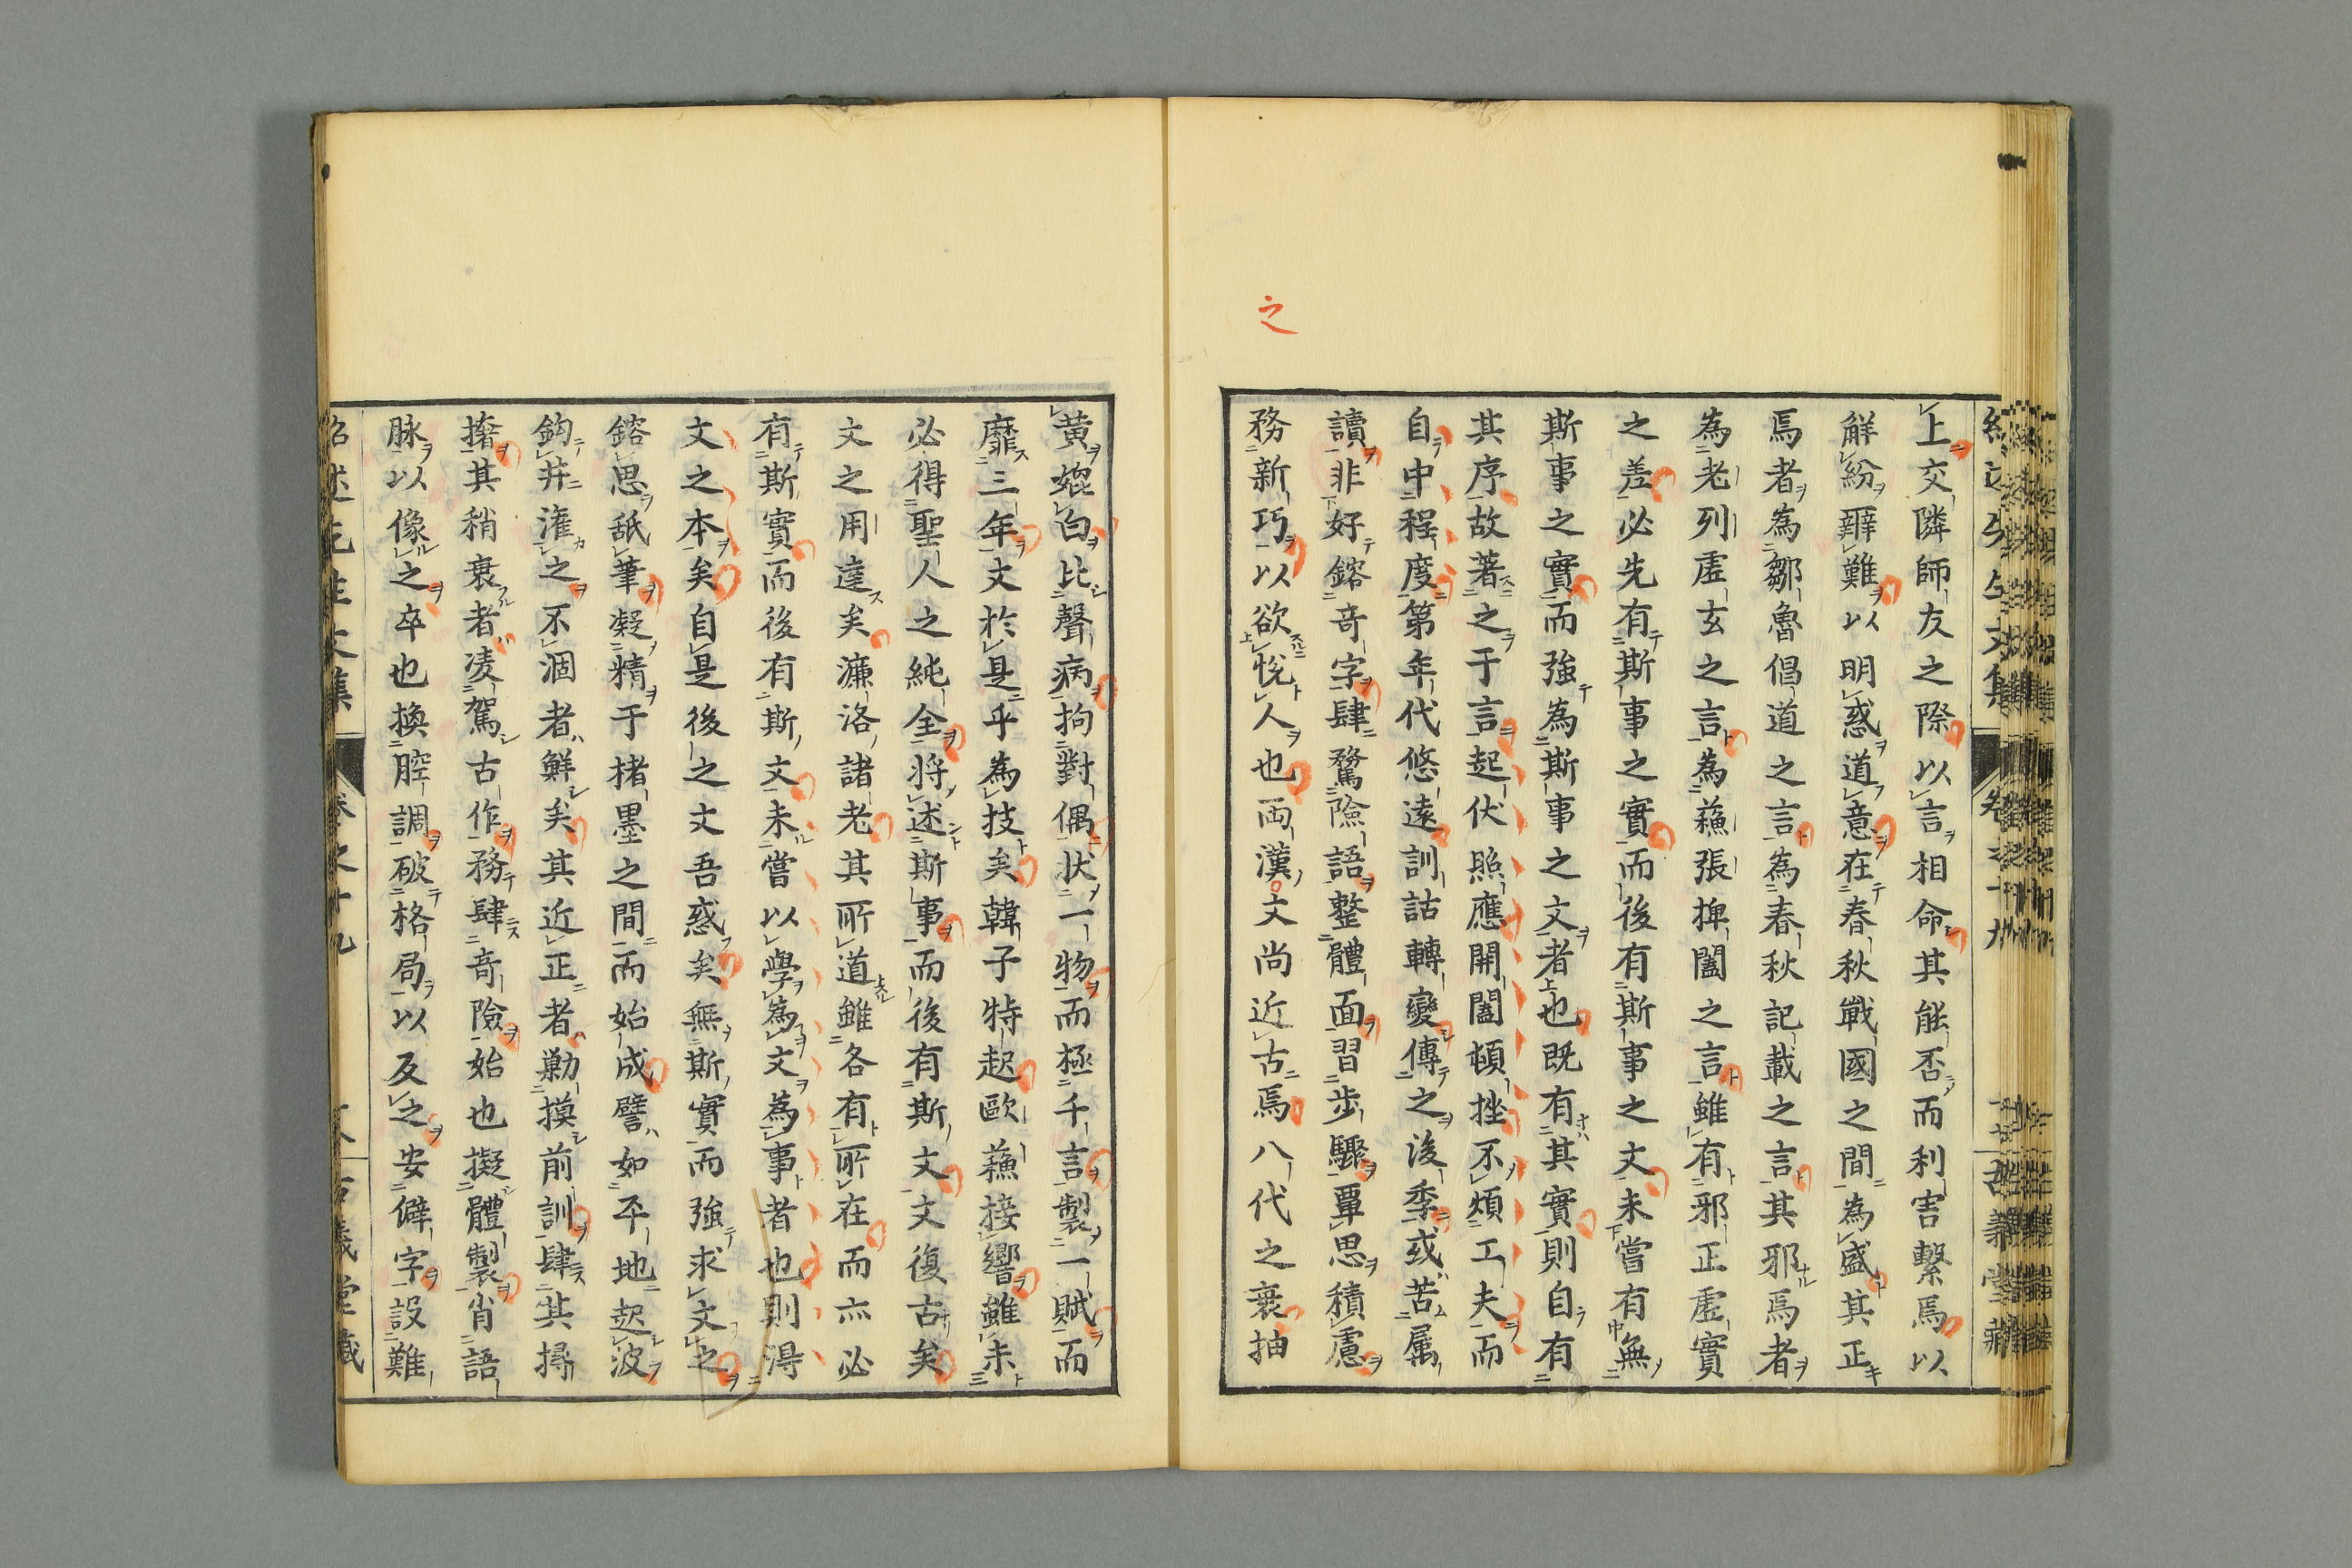 之
上交隣師友之際以言相命其能否而利害繫焉以
觧紛辭難以明惑道意在春秋戰國之間為盛其正
焉者為鄒魯倡道之言為春秋記載之言其邪焉者
為老列虛玄之言為蘓張捭闔之言雖有邪正虛實
之差必先有斯事之實而後有斯事之文未嘗有無
斯事之實而強為斯事之文者也既有其實則自有
其序故著之于言起伏照應開闔頓挫不煩工夫而
自中程度第年代悠遠訓詁轉變傳之後季或苦属
讀非好鎔竒字肆騖險語整體面習步驟覃思積慮
務新巧以欲悅人也両漢文尚近古焉八代之衰抽
黄媲白比聲病拘對偶状一物而極千言製一賦而
靡三年文於是乎為技矣韓子特起歐蘓接響雖未
必得聖人之純全将述斯事而後有斯文文復古矣
文之用達矣濂洛諸老其所道雖各有所在而亦必
有斯實而後有斯文未嘗以學為文為事者也則淂
文之本矣自是後之文吾惑矣無斯實而強求文之
鎔思舐筆凝精于楮墨之間而始成譬如平地起波
鈎井潅之不涸者鮮矣其近正者勦摸前訓肆其撏
撦其稍衰者凌駕古作務肆竒險始也擬體製肖語
脉以像之卒也換腔調破格局以反之安僻字設難